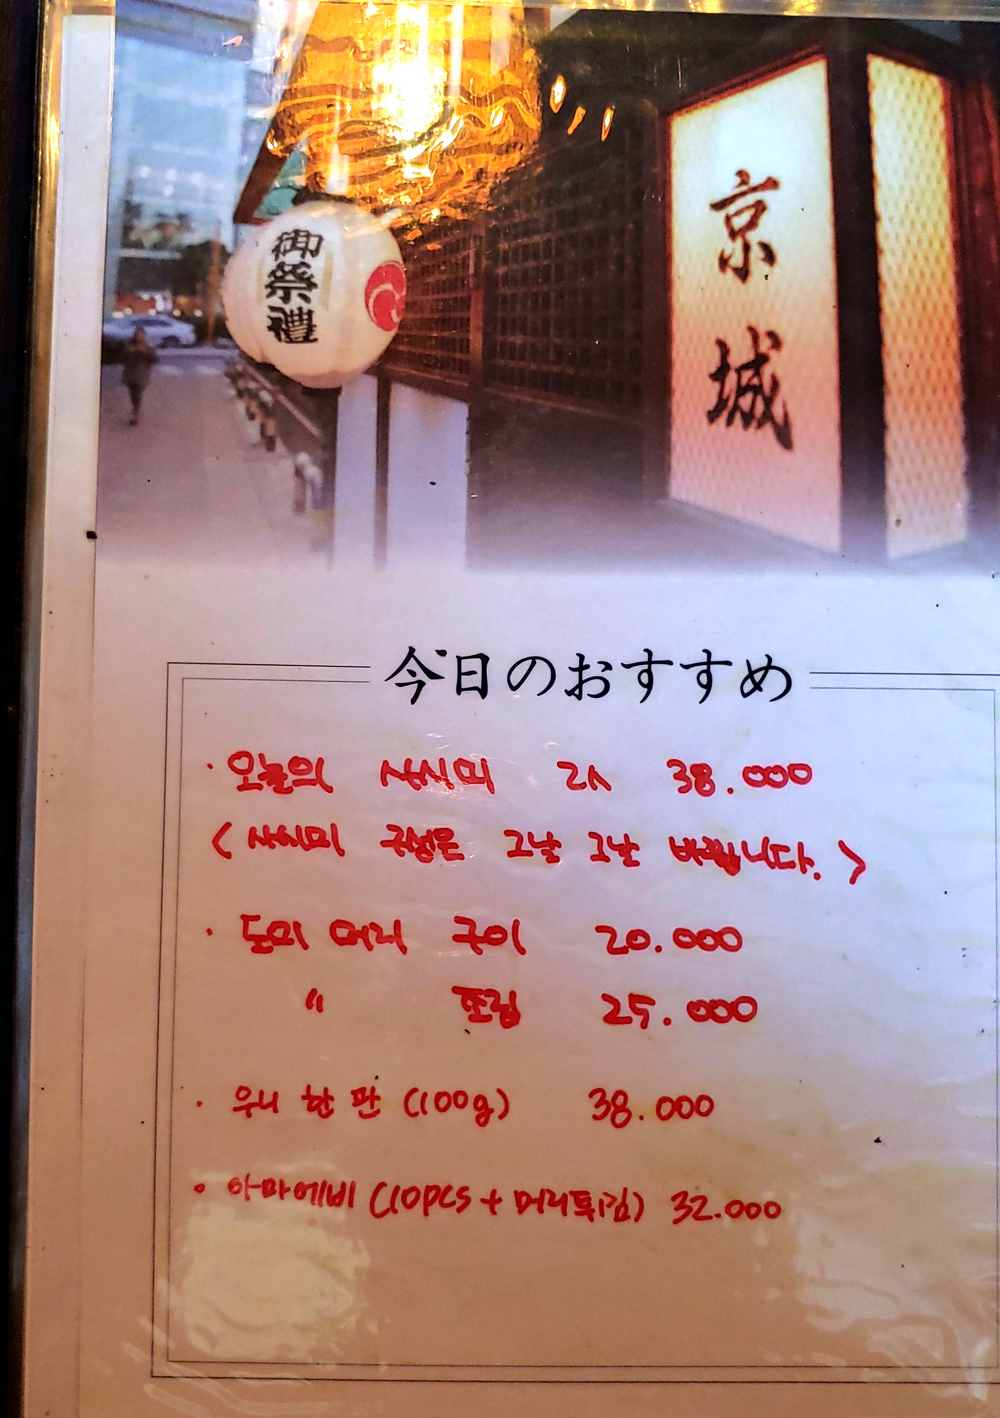 御祭禮
京城
今日のおすすめ
· 오늘의 사시미 2人 38.000
< 사시미 구성은 그날 그날 바뀝니다. >
· 도미 머리 구이 20.000
〃 조림 25.000
· 우니 한 판 (100g) 38.000
· 아마에비 (10pcs + 머리튀김) 32.000